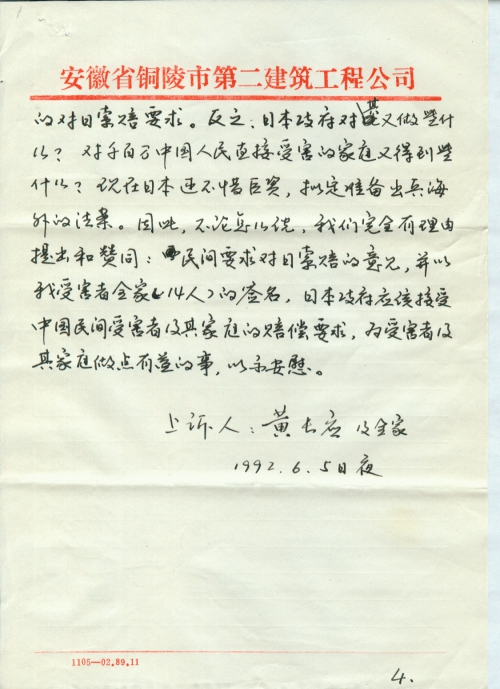 安徽省铜陵市第二建筑工程公司
的对日索赔要求。反之、日本政府对其又做些什
么？对千百万中国人民直接受害的家庭又得到些
什么？现在日本还不惜巨资，拟定准备出兵海
外的法案。因此，不论怎么说，我们完全有理由
提出和赞同：民间要求对日索赔的意见，并以
我受害者全家（14人）的签名，日本政府应该接受
中国民间受害者及其家庭的赔偿要求，为受害者及
其家庭做点有益的事，以示安慰。
上诉人：黄长应及全家
1992.6.5日夜
1105—02.89.11
4.